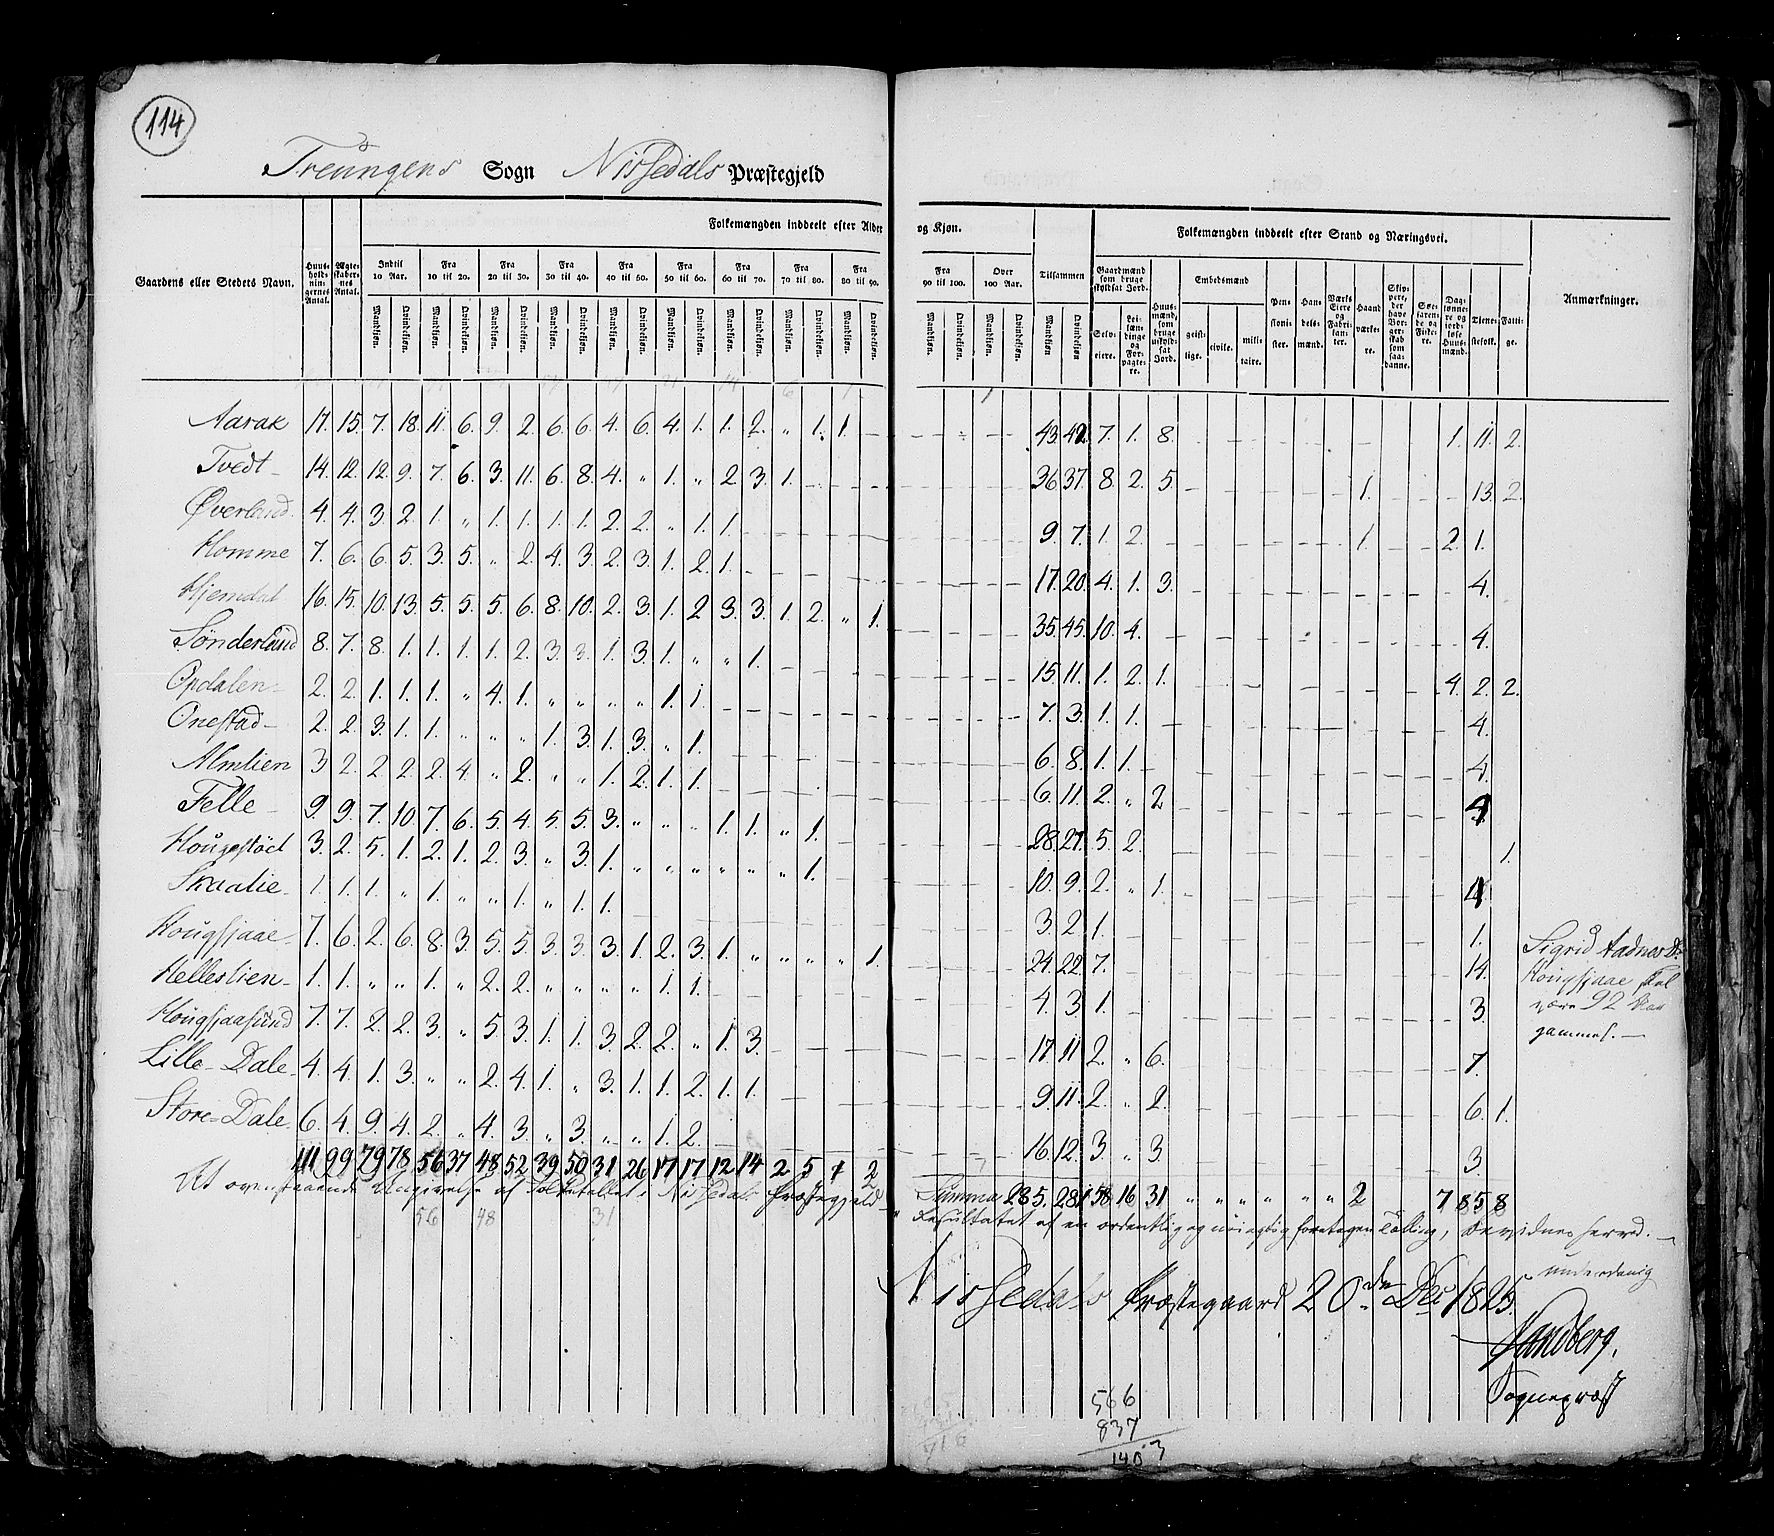 114
Treungens Sogn Nissedals Præstegjeld
Gaardens eller Stedets Navn.
Huusholdningernes Antal.
Ægteskabernes Antal.
Folkemængden inddeelt efter Alder og Kjøn.
Indtil 10 Aar.
Fra 10 til 20.
Fra 20 til 30.
Fra 30 til 40.
Fra 40 til 50.
Fra 50 til 60.
Fra 60 til 70.
Fra 70 til 80.
Fra 80 til 90.
Fra 90 til 100.
Over 100 Aar.
Mandkjøn. Qvindekjøn.
Tilsammen
Folkemængden inddeelt efter Stand og Næringsvei.
Gaardmænd som bruge skyldsat Jord.
Selveiere.
Leilændinge og Forpagtere.
Huusmænd, som bruge uskyldsat Jord.
Embedsmænd
geistlige. civile. militaire.
Pensionister.
Handelsmænd.
Værks Eiere og Fabrikanter.
Haandværkere.
Skippere, der have Borgerskab som saadanne.
Søefarende og Fiskere.
Daglønnere og jordløse Huusmænd.
Tjenestefolk.
Fattige.
Anmærkninger.
Aarak 17. 15. 7. 18. 11. 6. 9. 2. 6. 6. 4. 6. 4. 1. 1. 2. „ 1. 1. – 43. 42. 7. 1. 8. 1. 11. 2.
Tvedt 14. 12. 12. 9. 7. 6. 3. 11. 6. 8. 4. „ 1. „ 2. 3. 1. 36. 37. 8. 2. 5. 1. 13. 2.
Øverland 4. 4. 3. 2. 1. „ 1. 1. 1. 1. 2. 2. „ 1. 1. 9. 7. 1. 2. 1. 2. 1.
Homme 7. 6. 6. 5. 3. 5. „ 2. 4. 3. 2. 3. 1. 2. 1. 17. 20. 4. 1. 3. 4.
Hjemdal 16. 15. 10. 13. 5. 5. 5. 6. 8. 10. 2. 3. 1. 2 3. 3. 1. 2. „ 1. 35. 45. 10. 4. 4.
Sønderland 8. 7. 8. 1. 1. 1. 1. 2. 3. 3. 1. 3. 1. „ „ 1. 15. 11. 1. 2. 1. 4. 2. 2.
Opdalen 2. 2. 1. 1. 1. „ 4. 1. „ „ „ „ 1. 1. 7. 3. 1. 1. 4.
Onestad 2. 2. 3. 1. 1. „ „ „ 1. 3. 1. 3. „ 1. 6. 8. 1. 1. 4.
Almlien 3 2. 2 2. 2. 4. „ 2. „ „ 1. 2. 1. 1. 6. 11. 2. „ 2 4
Felle 9. 9. 7. 10. 7. 6. 5. 4. 5. 5. 3. „ „ „ 1. 1. „ 1. 28. 27. 5. 2. 1.
3. 2. 5. 1. 2. 1. 2. 3. „ 3. 1. „ „ „ „ „ „ 1. 10. 9. 2. „ 1.
Skaalie 1. 1. 1. „ 1. „ „ 1. „ 1. 1. 3. 2. 1. 1.
Hougsjaae 7. 6. 2. 6. 8. 3. 5. 5. 3. 3. 3. 1. 2. 3. 1. „ „ „ „ 1. 24. 22. 7. 14.
Sigrid Aadnes Dr
Hougsjaae skal
være 92 Aar
gammel.
Helleslien 1. 1. „ „ 1. „ 2. 2. „ „ „ „ 1. 1. 4. 3. 1. 3.
Hougsjaasund 7. 7. 2. 2. 3. „ 5. 3. 1. 1. 3. 2. 2. „ 1. 3. 17. 11. 2. „ 6. 7.
Lille-Dale 4. 4. 1. 3. „ „ 2. 4. 1. „ 3. 1. 1. 2. 1. 1. 9. 11. 2. „ 2. 6. 1.
Store-Dale 6. 4. 9. 4. 2. „ 4. 3. „ 3. „ „ 1. 2. 16. 12. 3. „ 3. 3.
111 99 79 78 56 37 48 52 39 50 31 26 17 17 12 14 2 5 1 2 Summa 285. 281 58 16 31 „ „ „ „ „ „ 2 7 85 8
At ovenstaaende Angivelse af Folketallet i Nissedals Præstegjeld
Resultatet af en ordentlig og nøiagtig foretagen Tælling, bevidnes herved.
56 48 31
underdanig
Nissedals Præstegaard 20de Dec 1825.
Sandberg.
Sogneprest
566
837
1403